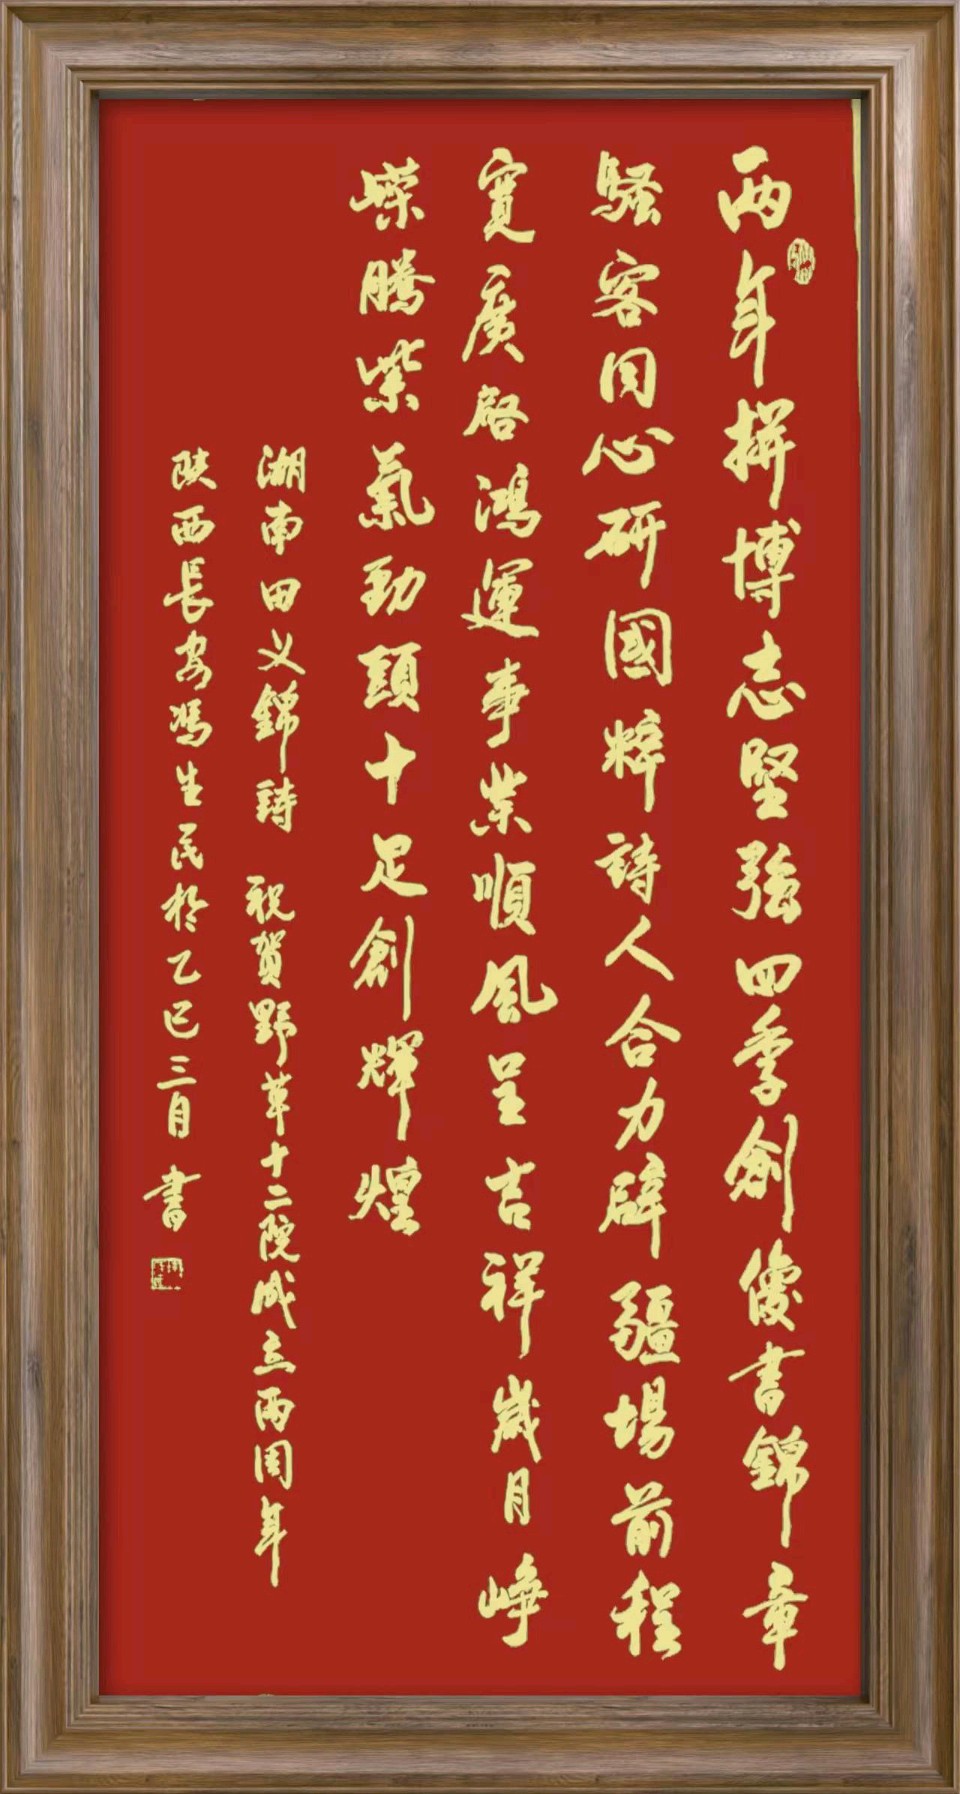 两年拼博志堅強四季創優書錦章
騷客同心研國粹詩人合力辟疆場前程
寬廣啓鴻運事業順風呈吉祥歲月崢
嶸騰紫氣勁頭十足創輝煌
湖南田义錦詩 祝賀野草十二院成立两周年
陕西長安馮生民於乙巳三月書